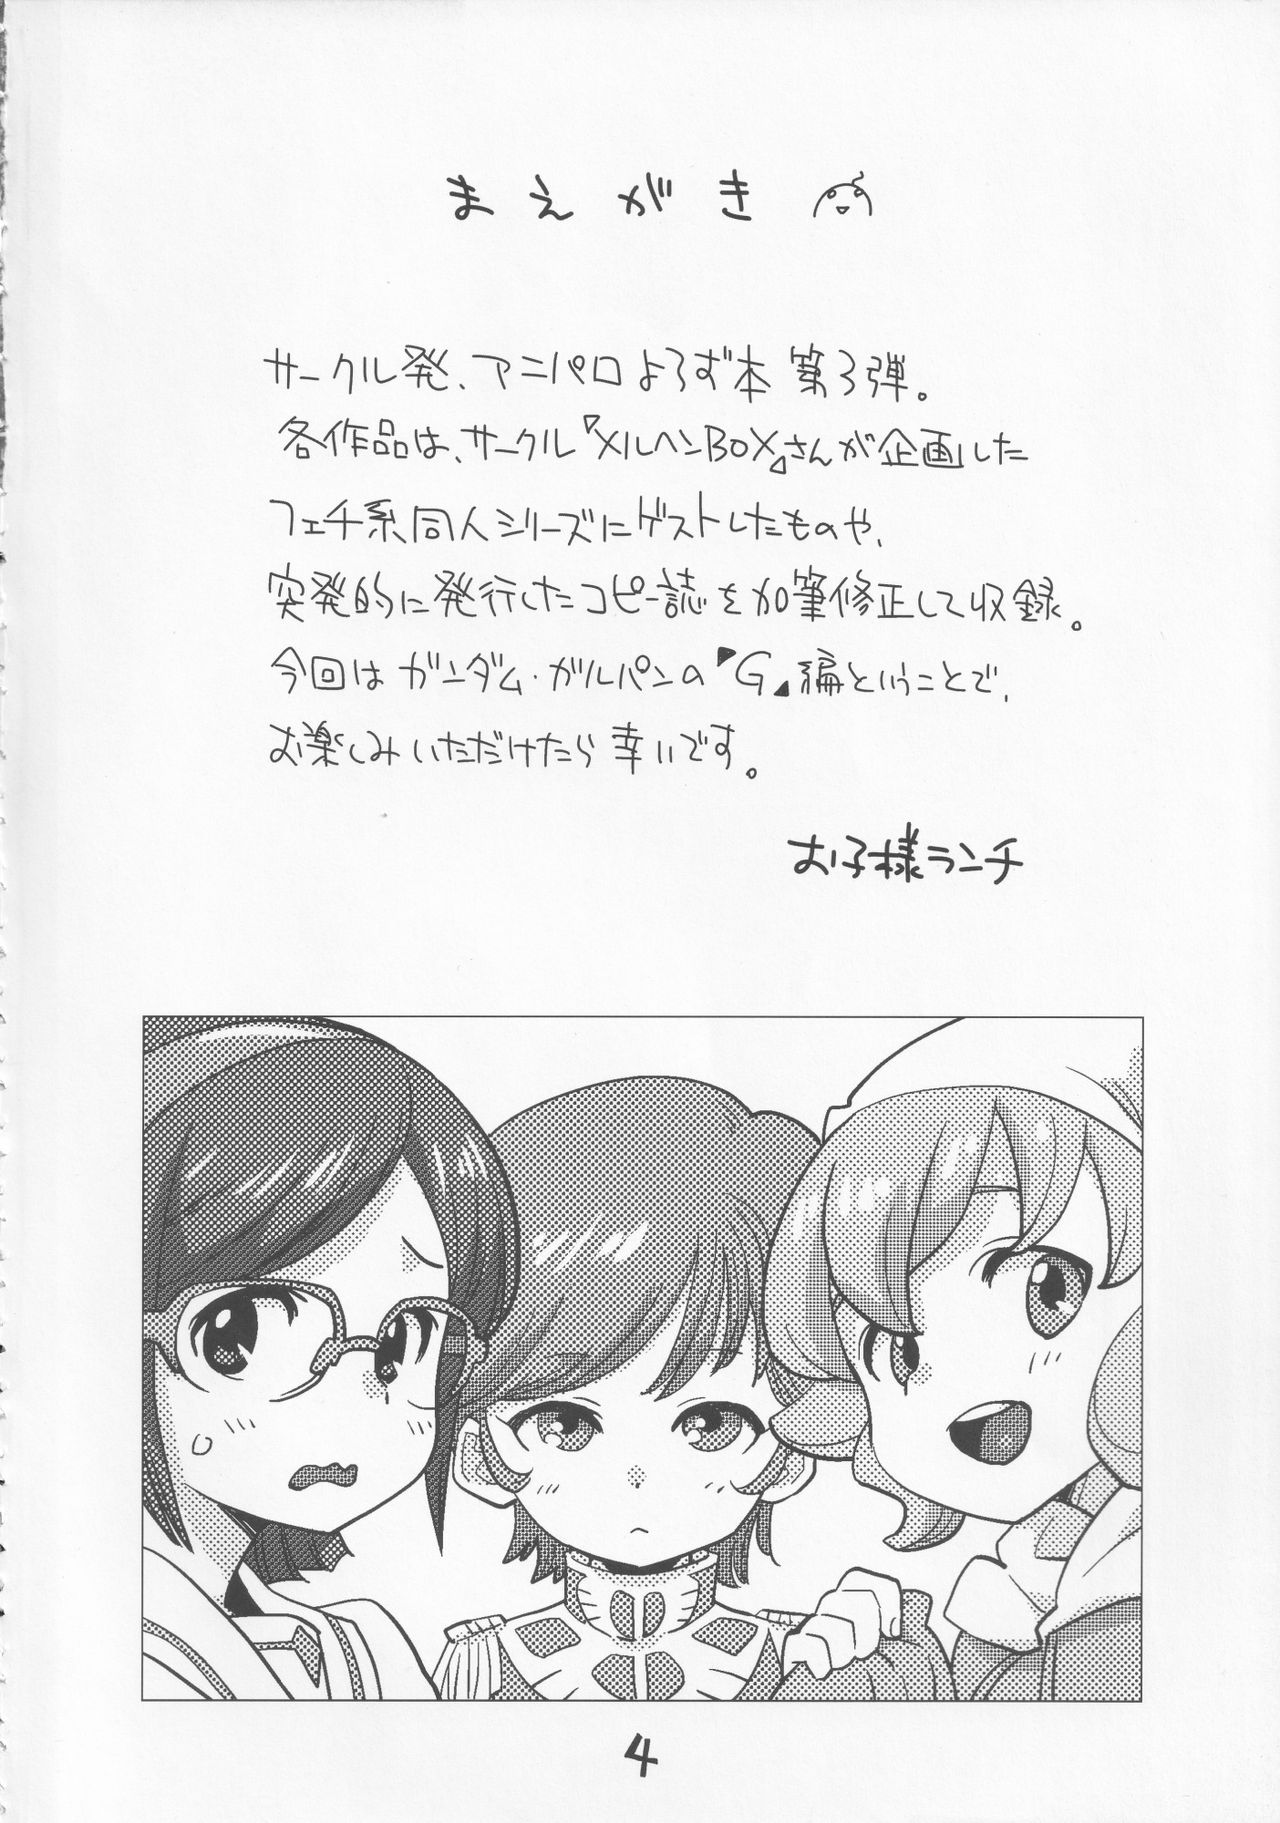 まえがき
サークル発、アニパロよろず本 第3弾。
各作品は、サークル『メルヘンBOX』さんが企画した
フェチ系同人シリーズにゲストしたものや、
突発的に発行したコピー誌を加筆修正して収録。
今回はガンダム・ガルパンの『G』編ということで、
お楽しみいただけたら幸いです。
お子様ランチ
4